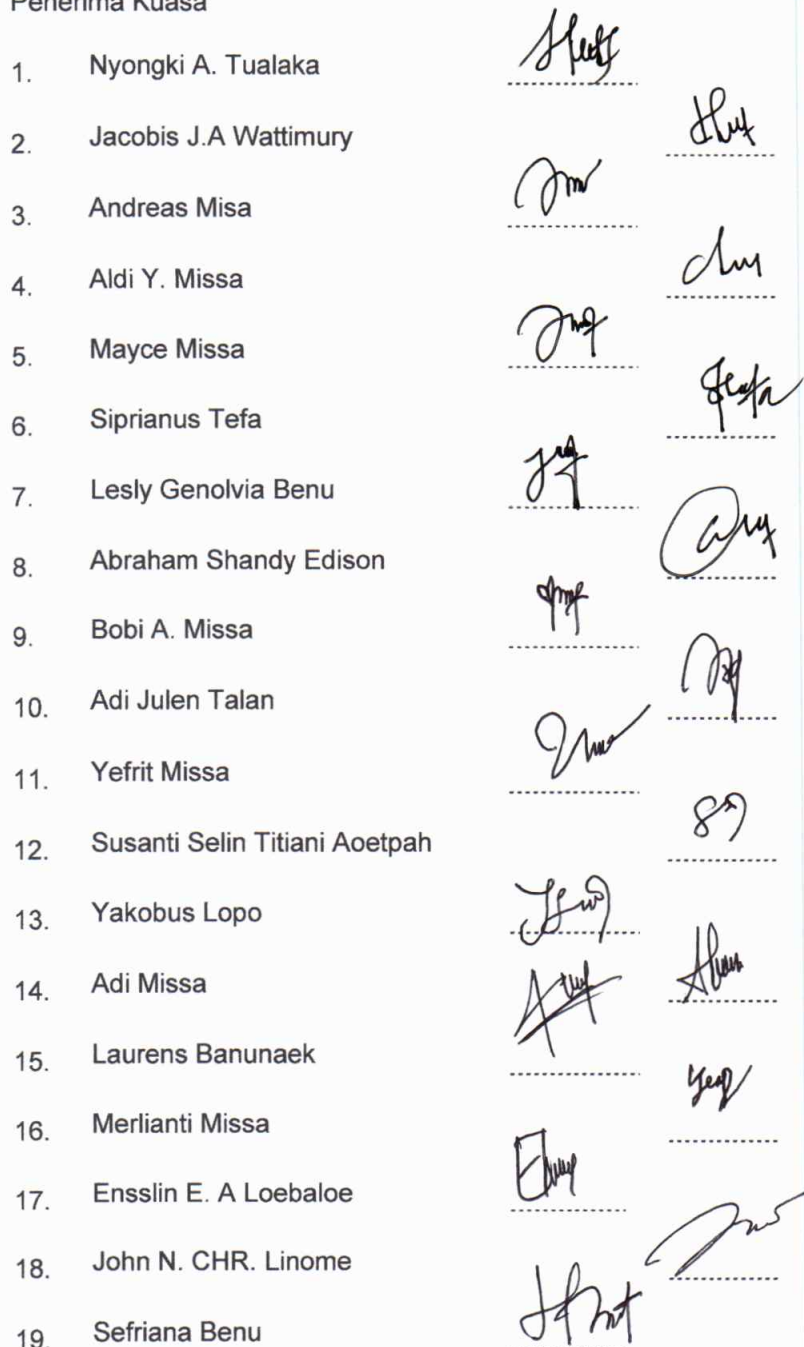 Penerima Kuasa
1. Nyongki A. Tualaka
2. Jacobis J.A Wattimury
3. Andreas Misa
4. Aldi Y. Missa
5. Mayce Missa
6. Siprianus Tefa
7. Lesly Genolvia Benu
8. Abraham Shandy Edison
9. Bobi A. Missa
10. Adi Julen Talan
11. Yefrit Missa
12. Susanti Selin Titiani Aoetpah
13. Yakobus Lopo
14. Adi Missa
15. Laurens Banunaek
16. Merlianti Missa
17. Ensslin E. A Loebaloe
18. John N. CHR. Linome
19. Sefriana Benu